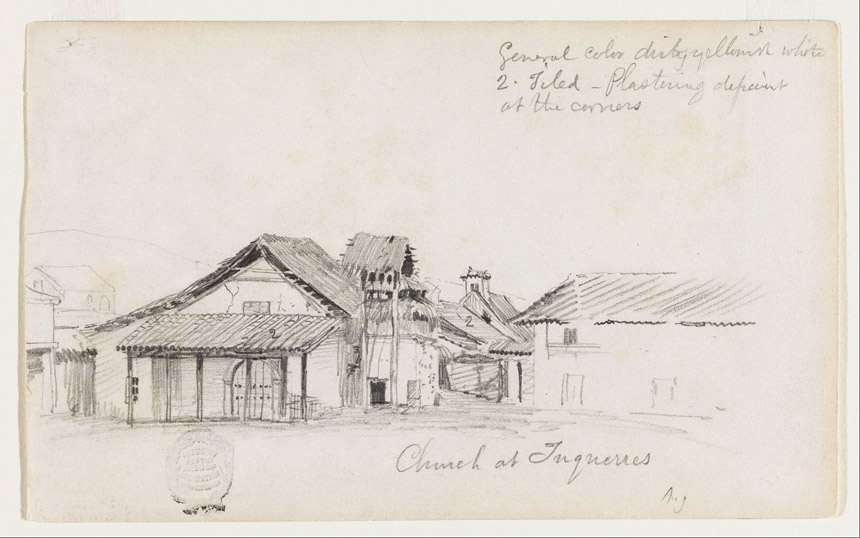 General color dirty yellowish white
2. Tiled - Plastering
at the corners
2
2
Church at Tuquerres